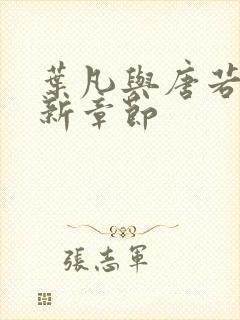 葉凡與唐若
新章節
張志軍